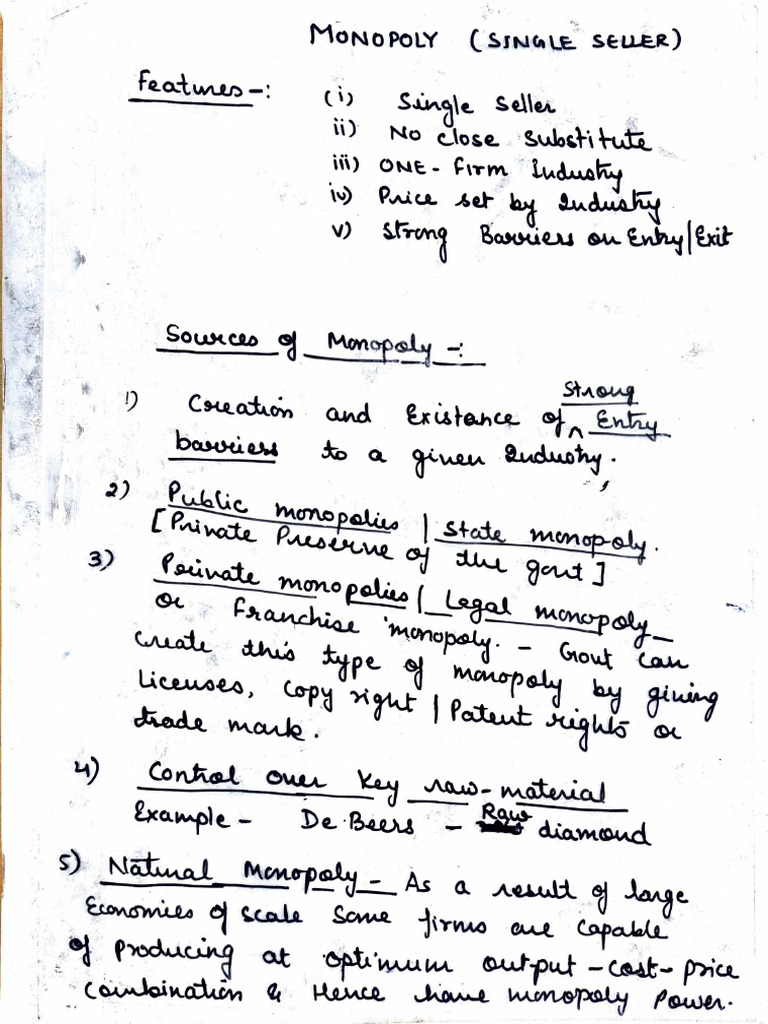 MONOPOLY (SINGLE SELLER)
Features-:
(i) Single Seller
ii) No close substitute
iii) ONE-firm Industry
iv) Price set by Industry
v) Strong Barriers on Entry/Exit
Sources of Monopoly -:
1) Creation and Existance of Strong Entry
barriers to a given Industry.
2) Public monopolies / State monopoly.
[Private Preserve of the govt]
3) Private monopolies / Legal monopoly
or franchise monopoly. - Govt can
create this type of monopoly by giving
Licenses, Copy right / Patent rights or
trade mark.
4) Control over key raw-material
Example - De Beers - Raw diamond
5) Natural Monopoly - As a result of large
Economies of scale some firms are capable
of producing at optimum output-cost-price
combination & Hence have monopoly Power.